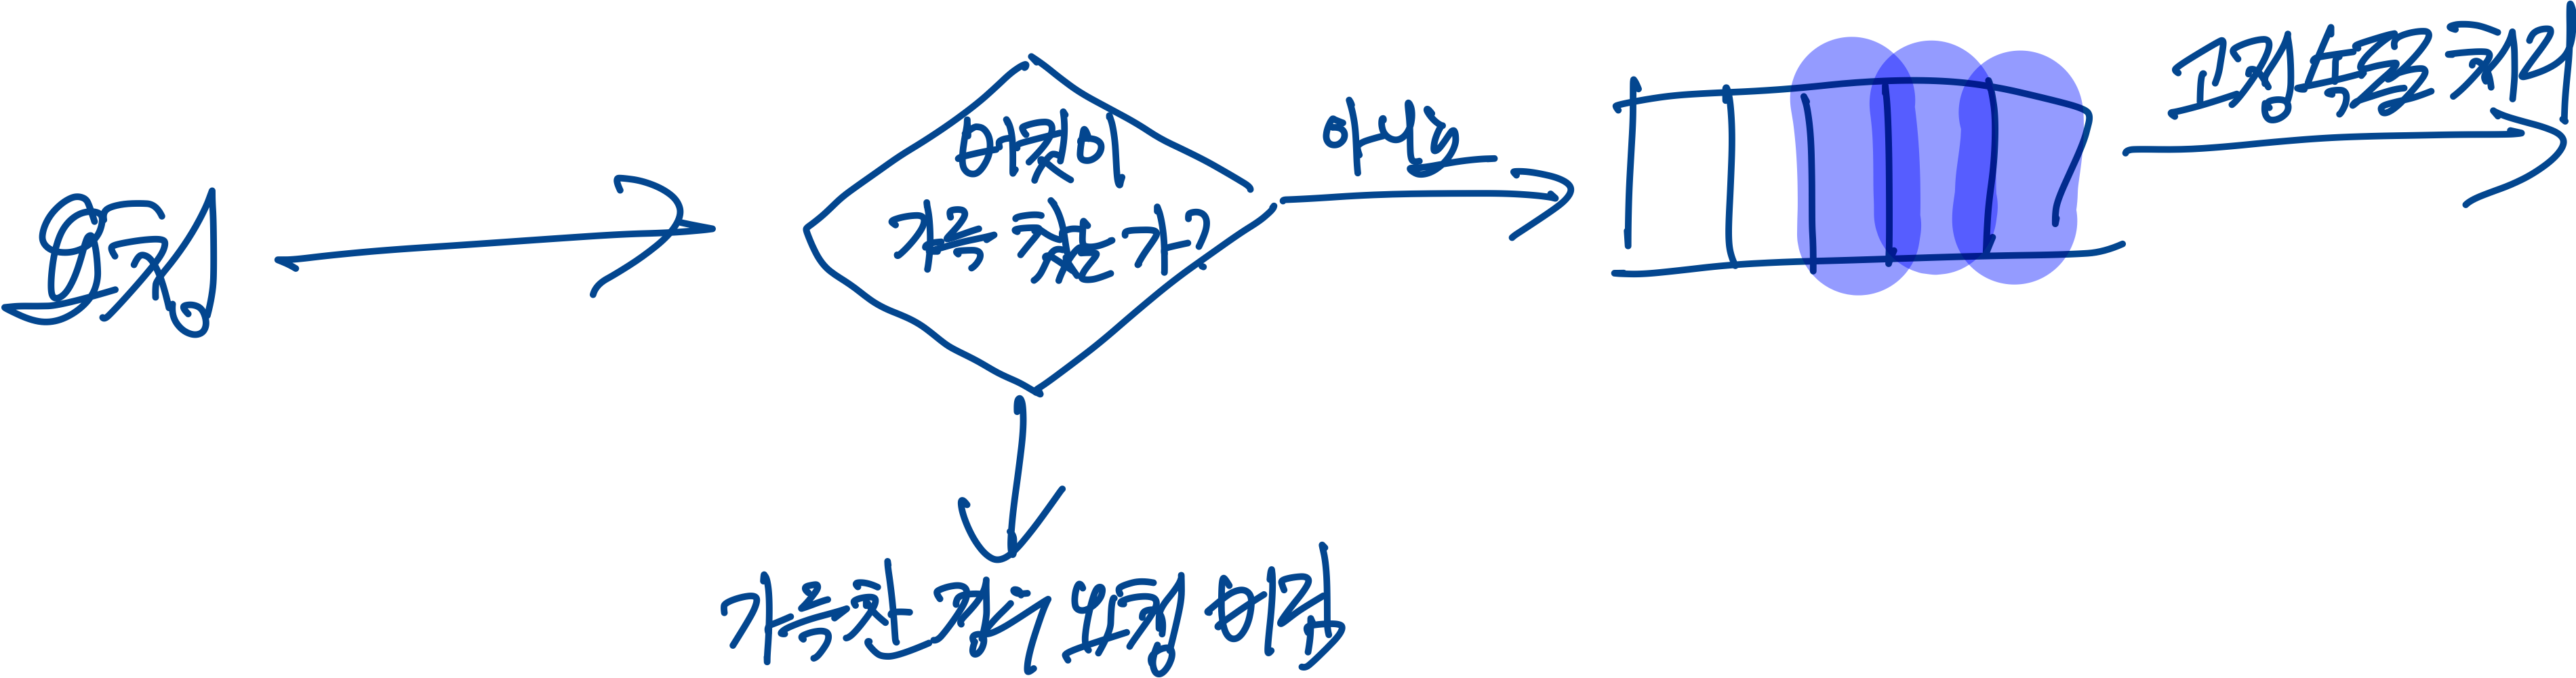 요청
버킷이
가득 찼는가?
아니오
고정된 속도로 처리
가득찬 경우 요청 버림